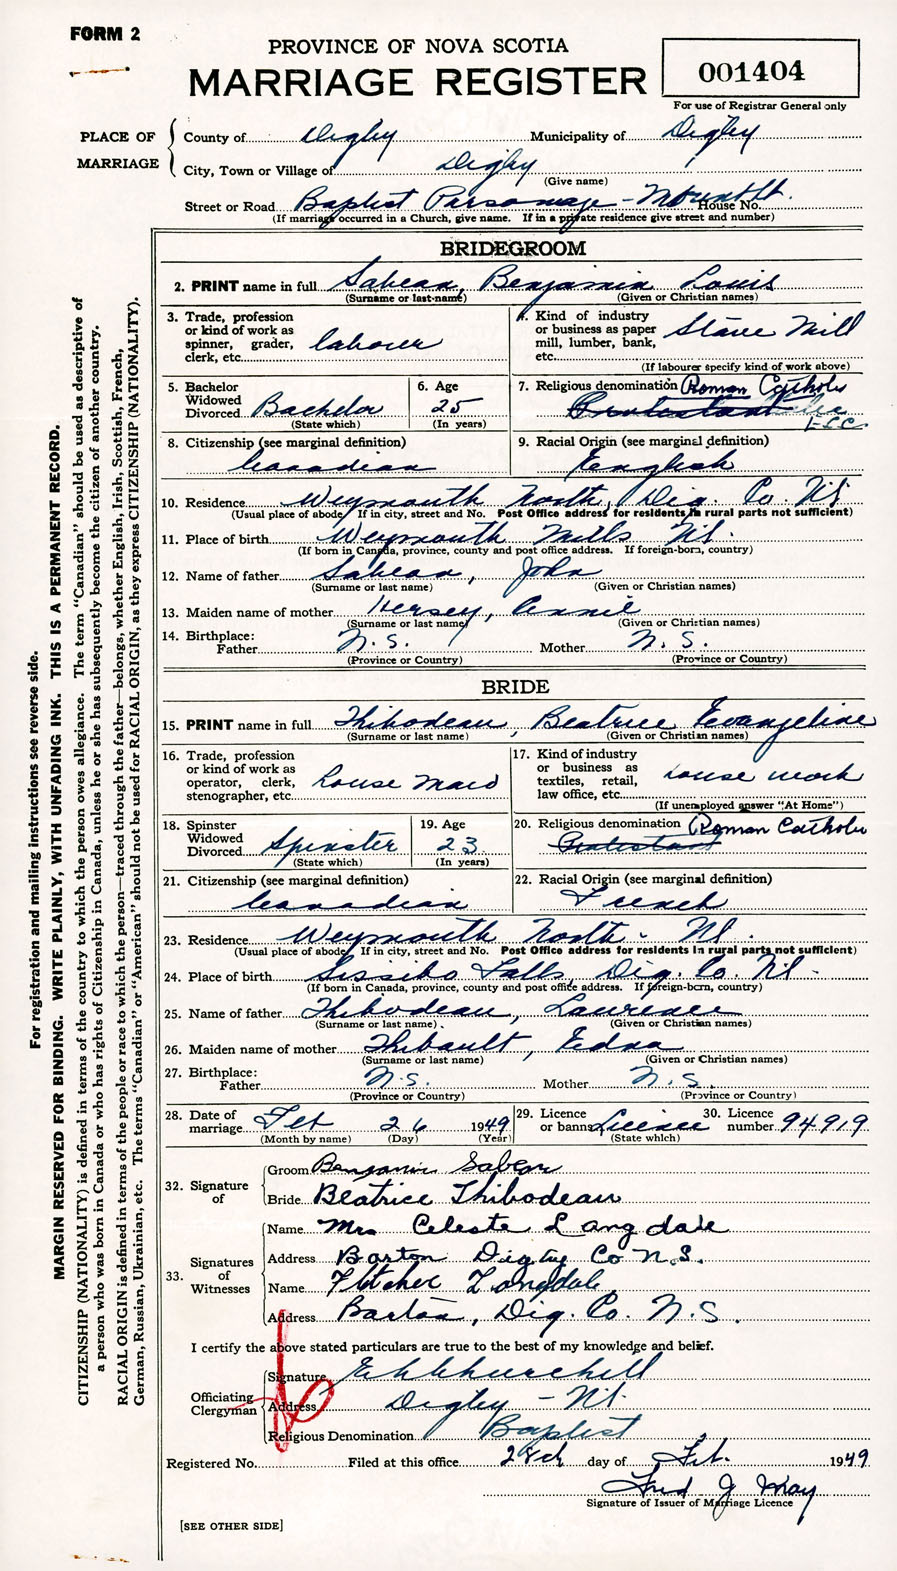 FORM 2
PROVINCE OF NOVA SCOTIA
MARRIAGE REGISTER
001404
For use of Registrar General only
PLACE OF MARRIAGE
County of Digby Municipality of Digby
City, Town or Village of Digby
(Give name)
Street or Road Baptist Parsonage - Mount St. House No.
(If marriage occurred in a Church, give name. If in a private residence give street and number)
BRIDEGROOM
2. PRINT name in full Sabean, Benjamin Louis
(Surname or last name) (Given or Christian names)
3. Trade, profession or kind of work as spinner, grader, clerk, etc. labourer
4. Kind of industry or business as paper mill, lumber, bank, etc. Stave Mill
(If labourer specify kind of work above)
5. Bachelor Widowed Divorced Bachelor
(State which)
6. Age 25
(In years)
7. Religious denomination Roman Catholic
Protestant
8. Citizenship (see marginal definition)
Canadian
9. Racial Origin (see marginal definition)
English
10. Residence Weymouth North, Dig. Co. NS
(Usual place of abode. If in city, street and No. Post Office address for residents in rural parts not sufficient)
11. Place of birth Weymouth Mills NS.
(If born in Canada, province, county and post office address. If foreign-born, country)
12. Name of father Sabean, John
(Surname or last name) (Given or Christian names)
13. Maiden name of mother Hersey, Annie
(Surname or last name) (Given or Christian names)
14. Birthplace:
Father N.S. Mother N.S.
(Province or Country) (Province or Country)
BRIDE
15. PRINT name in full Thibodeau, Beatrice Evangeline
(Surname or last name) (Given or Christian names)
16. Trade, profession or kind of work as operator, clerk, stenographer, etc. house maid
17. Kind of industry or business as textiles, retail, law office, etc. house work
(If unemployed answer "At Home")
18. Spinster Widowed Divorced Spinster
(State which)
19. Age 23
(In years)
20. Religious denomination Roman Catholic
Protestant
21. Citizenship (see marginal definition)
Canadian
22. Racial Origin (see marginal definition)
French
23. Residence Weymouth North - NS.
(Usual place of abode. If in city, street and No. Post Office address for residents in rural parts not sufficient)
24. Place of birth Sissibo Falls Dig. Co. NS.
(If born in Canada, province, county and post office address. If foreign-born, country)
25. Name of father Thibodeau, Laurence
(Surname or last name) (Given or Christian names)
26. Maiden name of mother Thibault, Edna
(Surname or last name) (Given or Christian names)
27. Birthplace:
Father N.S. Mother N.S.
(Province or Country) (Province or Country)
28. Date of marriage Feb 26 1949
(Month by name) (Day) (Year)
29. Licence or banns License
(State which)
30. Licence number 94919
32. Signature of
Groom Benjamin Sabean
Bride Beatrice Thibodeau
33. Signatures of Witnesses
Name Mrs Celeste Langdale
Address Barton Digby Co N.S.
Name Fletcher Langdale
Address Barton, Dig. Co. N.S.
I certify the above stated particulars are true to the best of my knowledge and belief.
Officiating Clergyman
Signature Churchill
Address Digby - NS.
Religious Denomination Baptist
Registered No. Filed at this office 28th day of Feb. 1949
Fred J May
Signature of Issuer of Marriage Licence
[SEE OTHER SIDE]
For registration and mailing instructions see reverse side.
MARGIN RESERVED FOR BINDING. WRITE PLAINLY, WITH UNFADING INK. THIS IS A PERMANENT RECORD.
CITIZENSHIP (NATIONALITY) is defined in terms of the country to which the person owes allegiance. The term "Canadian" should be used as descriptive of
a person who was born in Canada or who has rights of Citizenship in Canada, unless he or she has subsequently become the citizen of another country.
RACIAL ORIGIN is defined in terms of the people or race to which the person—traced through the father—belongs, whether English, Irish, Scottish, French,
German, Russian, Ukrainian, etc. The terms "Canadian" or "American" should not be used for RACIAL ORIGIN, as they express CITIZENSHIP (NATIONALITY).